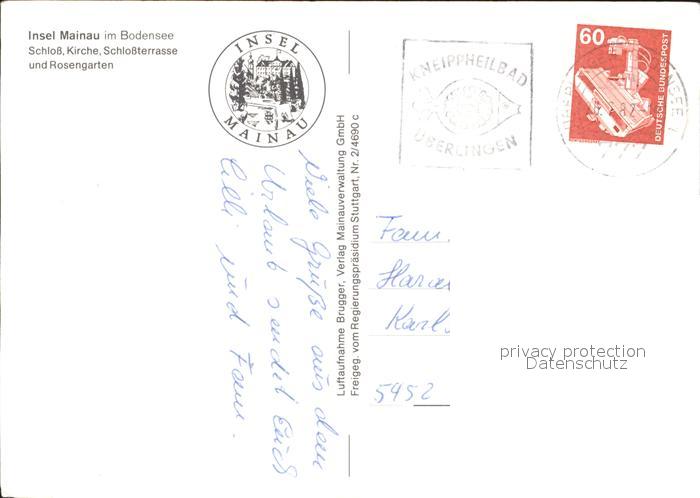 Insel Mainau im Bodensee
Schloß, Kirche, Schloßterrasse
und Rosengarten
INSEL
MAINAU
Viele Grüße aus dem
Urlaub sendet Euch
und Fam.
Luftaufnahme Brugger, Verlag Mainauverwaltung GmbH
Freigeg. vom Regierungspräsidium Stuttgart, Nr. 2/4690 c
KNEIPPHEILBAD
ÜBERLINGEN
60
DEUTSCHE BUNDESPOST
Fam.
Karl.
5952
privacy protection
Datenschutz